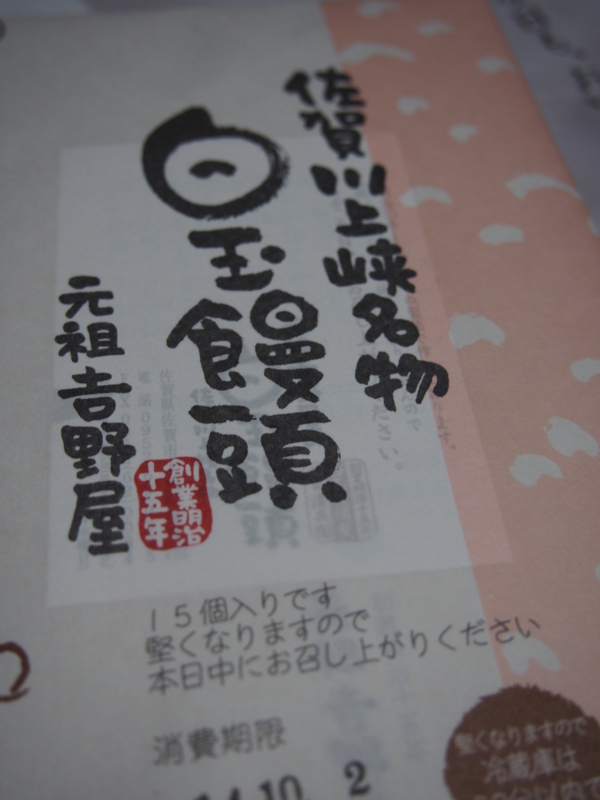 佐賀川上峡名物
白玉饅頭
元祖吉野屋
創業明治
十五年
15個入りです
堅くなりますので
本日中にお召し上がりください
消費期限
14.10. 2
堅くなりますので
冷蔵庫は